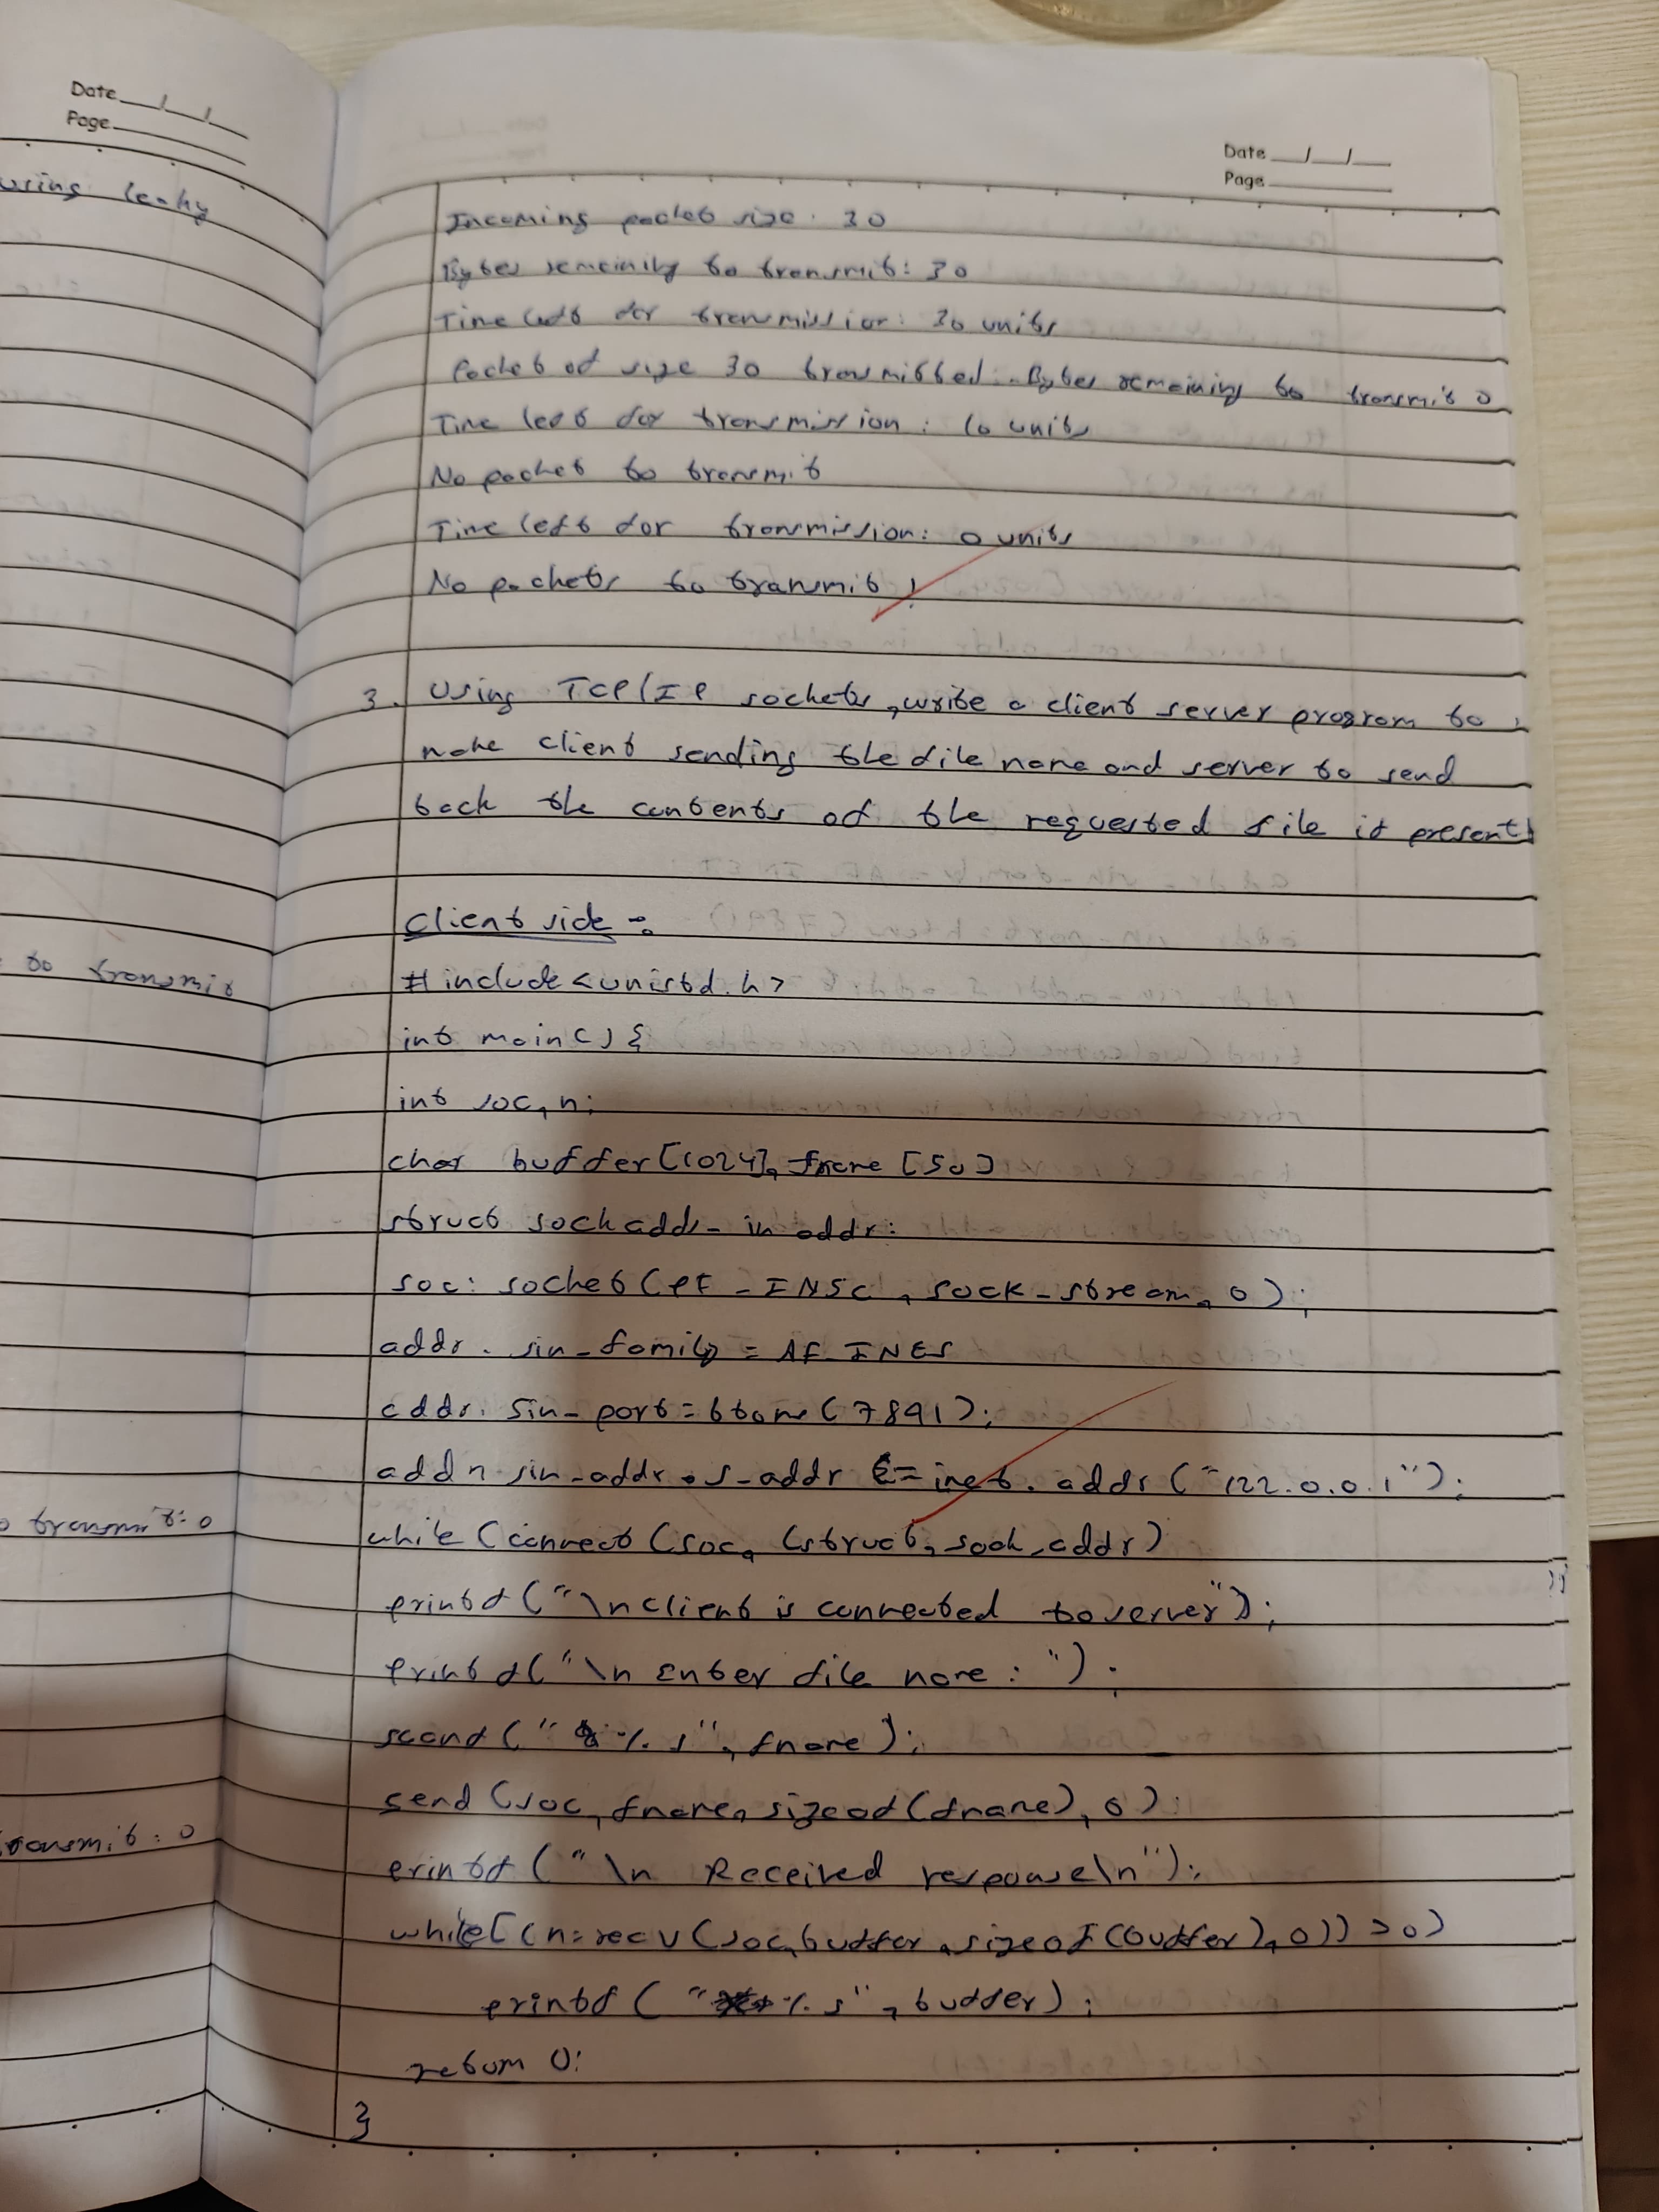 Date
Page
using leaky
to transmit
transmit: 0
transmit: 0
Date
Page
Incoming packet size: 30
Bytes remaining to transmit: 30
Time left for transmission: 30 units
Packet of size 30 transmitted. Bytes remaining to transmit 0
Time left for transmission: 10 units
No packet to transmit
Time left for transmission: 0 units
No packets to transmit!
3. Using TCP/IP sockets, write a client server program to
make client sending the file name and server to send
back the contents of the requested file if present
Client side :-
#include<unistd.h>
int main() {
int soc, n;
char buffer[1024], fname [50]
struct sockaddr_in addr;
soc: socket(PF_INSC, SOCK_stream, 0);
addr. sin_family = AF_INES
addr. sin_port = (7891);
addr sin_addr.s_addr = inet. addr ("122.0.0.1");
while (connect (soc, (struct, sock_addr)
printf ("\nclient is connected to server");
printf ("\n Enter file name: ");
scanf ("%s", fname);
send (soc, fname, sizeof(fname), 0);
printf ("\n Received response\n");
while[(n=recv(soc,buffer,sizeof(buffer),0))>0)
printf ("%s", buffer);
return 0;
}